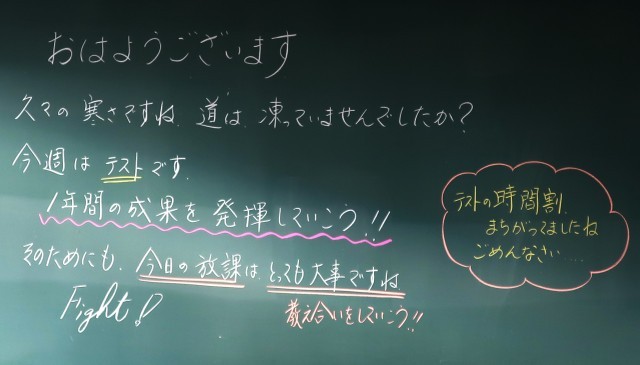 おはようございます
久々の寒さですね。道は凍っていませんでしたか?
今週はテストです。
1年間の成果を発揮していこう!!
そのためにも、今日の放課は、とっても大事ですね
Fight!
教え合いをしていこう!!
テストの時間割、
まちがってましたね
ごめんなさい....